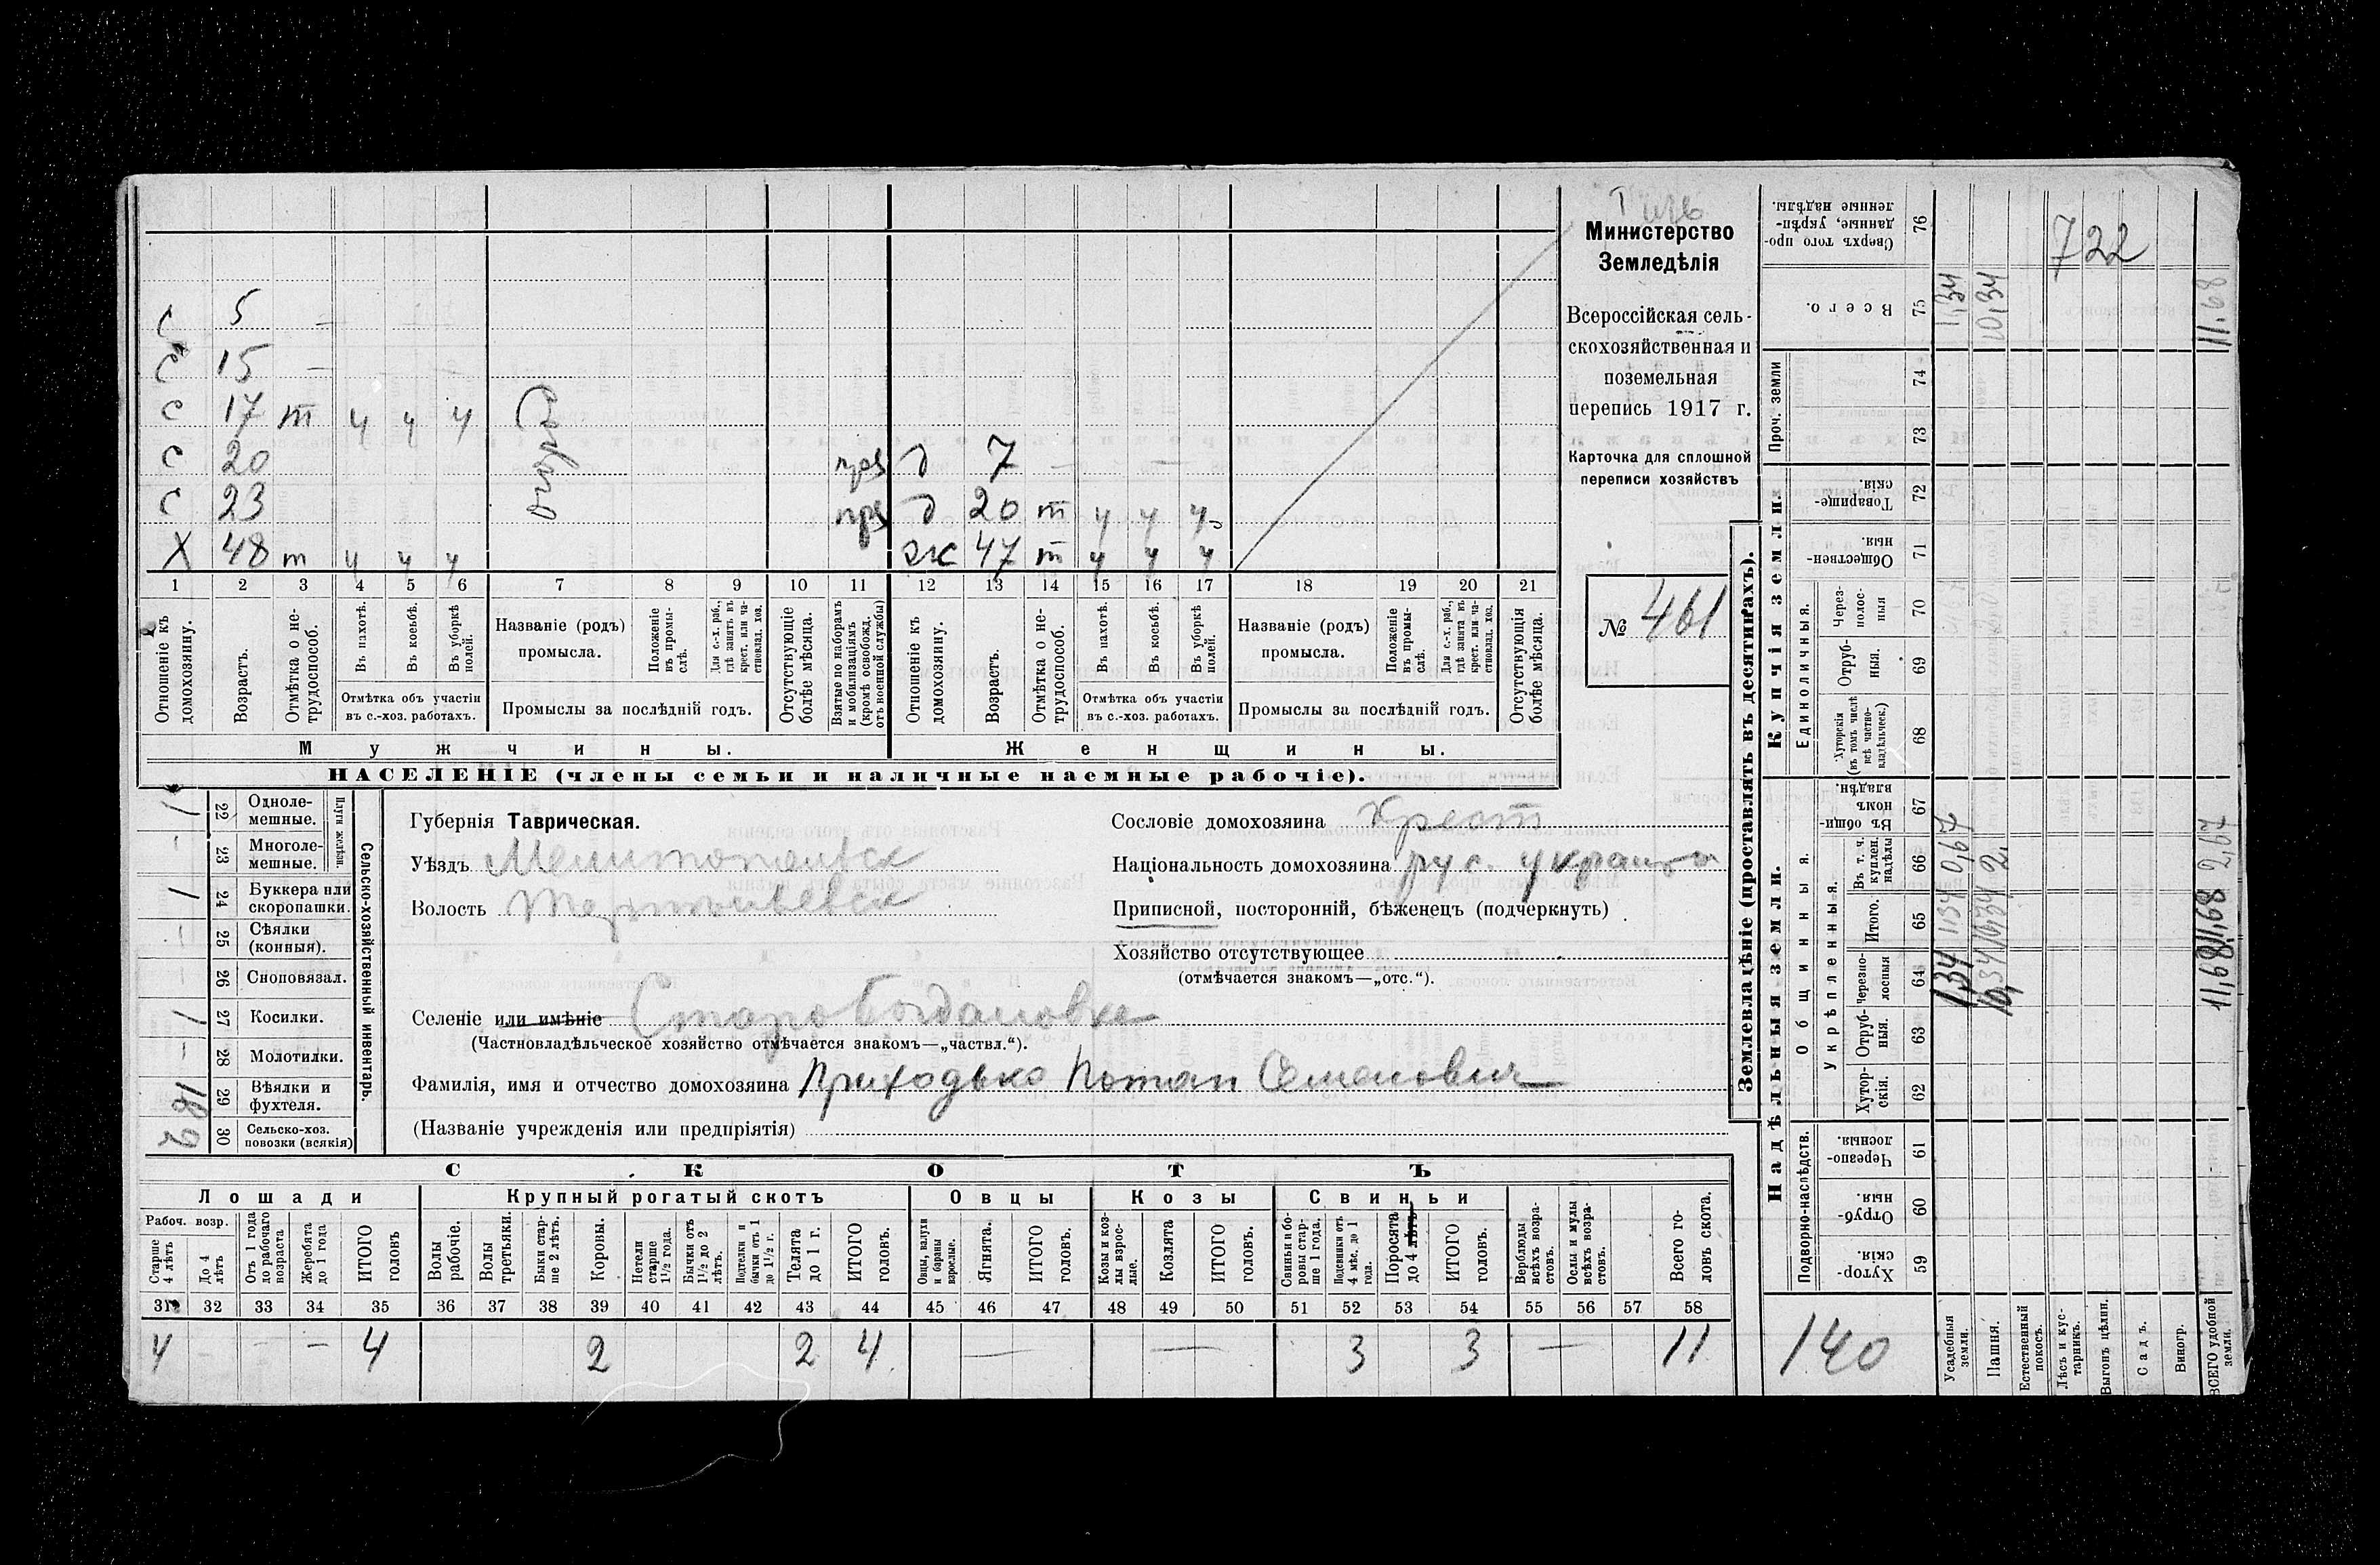 С 5 –
С 15 –
С 17 т ч ч ч
С 20
С 23
Х 48 т ч ч ч
д 7 – –
д 20 т ч ч ч
ж 47 т ч ч ч
1 2 3 4 5 6 7 8 9 10 11 12 13 14 15 16 17 18 19 20 21
Отношеніе къ домохозяину.
Возрастъ.
Отмѣтка о не-
трудоспособ.
Въ пахотѣ.
Въ косьбѣ.
Въ уборкѣ полей.
Отмѣтка объ участіи
въ с.-хоз. работахъ.
Названіе (родъ)
промысла.
Положеніе въ промы-
слѣ.
Для с.-х. раб., гдѣ занятъ въ крест. или ча-
стновлад. хоз.
Промыслы за послѣдній годъ.
Отсутствующіе болѣе мѣсяца.
Взятые по наборамъ и мобилизаціямъ (кромѣ освобожд. отъ военной службы)
Отношеніе къ домохозяину.
Возрастъ.
Отмѣтка о не-
трудоспособ.
Въ пахотѣ.
Въ косьбѣ.
Въ уборкѣ полей.
Отмѣтка объ участіи
въ с.-хоз. работахъ.
Названіе (родъ)
промысла.
Положеніе въ промы-
слѣ.
Для с.-х. раб., гдѣ занята въ крест. или ча-
стновлад. хоз.
Промыслы за послѣдній годъ.
Отсутствующія болѣе мѣсяца.
Мужчины.
Женщины.
НАСЕЛЕНІЕ (члены семьи и наличные наемные рабочіе).
Министерство
Земледѣлія
Всероссійская сель-
скохозяйственная и
поземельная
перепись 1917 г.
Карточка для сплошной
переписи хозяйствъ
№ 461
Сельско-хозяйственный инвентарь.
Плуги желѣзн.
22 Однолe-
мешные. 1
23 Многолe-
мешные. –
24 Буккера или
скоропашки. 1
25 Сѣялки
(конныя). –
26 Сноповязал. –
27 Косилки. 1
28 Молотилки. –
29 Вѣялки и
фухтеля.
30 Сельско-хоз.
повозки (всякія) 2
Губернія Таврическая.
Уѣздъ Мелитопольск
Волость
Селеніе или имѣніе Старо Богдановка
(Частновладѣльческое хозяйство отмѣчается знакомъ—„частвл.“).
Фамилія, имя и отчество домохозяина Приходько Потап Семенович
(Названіе учрежденія или предпріятія)
Сословіе домохозяина Крест
Національность домохозяина рус. украин
Приписной, посторонній, бѣженецъ (подчеркнуть)
Хозяйство отсутствующее
(отмѣчается знакомъ—„отс.“).
СКОТЪ
Лошади
Крупный рогатый скотъ
Овцы
Козы
Свиньи
Рабоч. возр.
Старше 4 лѣтъ
До 4 лѣтъ
Отъ 1 года до рабочаго возраста
Жеребята до 1 года
ИТОГО головъ
Волы рабочіе.
Волы третьяки.
Быки стар-
ше 2 лѣтъ.
Коровы.
Нетели старше 1½ года.
Бычки отъ 1½ до 2 лѣтъ.
Подтелки и бычки отъ 1 до 1½ г.
Телята до 1 г.
ИТОГО головъ.
Овцы, валухи и бараны взрослые.
Ягнята.
ИТОГО головъ.
Козы и коз-
лы взрос-
лые.
Козлята
ИТОГО головъ.
Свиньи и бо-
ровы стар-
ше 1 года.
Подсвинки отъ 4 мѣс. до 1 года.
Поросята до 4 лѣтъ
ИТОГО головъ.
Верблюды всѣхъ возра-
стовъ.
Ослы и мулы всѣхъ возра-
стовъ.
Всего го-
ловъ скота.
31 32 33 34 35 36 37 38 39 40 41 42 43 44 45 46 47 48 49 50 51 52 53 54 55 56 57 58
4 – – – 4 2 2 4 — — 3 3 — 11
Землевладѣніе (проставлять въ десятинахъ).
Купчія земли.
Надѣльныя земли.
Сверхъ того про-
данные, укрѣп-
ленные надѣлы. 76
Всего. 75
Проч. земли 74
73
Товарище-
скія. 72
Обществен-
ныя. 71
Единоличныя.
Через-
полос-
ныя 70
Отруб-
ныя. 69
Хуторскія (въ томъ числѣ всѣ частно-
владѣльческ.) 68
Общинныя.
Въ общи-
номъ владѣн. 67
Укрѣпленныя.
Въ т. ч. куплен. надѣлы 66
Итого. 65
Черезпо-
лосныя 64
Отруб-
ныя. 63
Хутор-
скія. 62
Подворно-наслѣдств.
Черезпо-
лосныя. 61
Отруб-
ныя. 60
Хутор-
скія. 59
140
Усадебныя земли. 1,34 1,34 0,67 1,34
Пашня. 10,34 10,34 2, 10,34
Естественный покосъ.
Лѣсъ и кус-
тарникъ.
Выгонъ цѣлин.
Садъ.
Виногр.
ВСЕГО удобной земли. 11,68 11,68 2,67 11,68
722